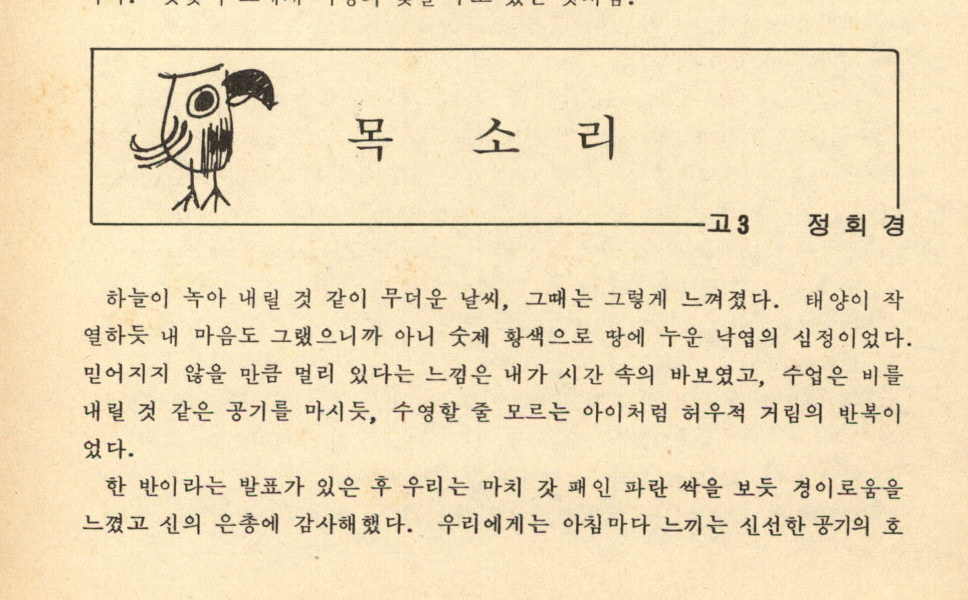 목 소 리
고3 정 회 경
하늘이 녹아 내릴 것 같이 무더운 날씨, 그때는 그렇게 느껴졌다. 태양이 작
열하듯 내 마음도 그랬으니까 아니 숫제 황색으로 땅에 누운 낙엽의 심정이었다.
믿어지지 않을 만큼 멀리 있다는 느낌은 내가 시간 속의 바보였고, 수업은 비를
내릴 것 같은 공기를 마시듯, 수영할 줄 모르는 아이처럼 허우적 거림의 반복이
었다.
한 반이라는 발표가 있은 후 우리는 마치 갓 패인 파란 싹을 보듯 경이로움을
느꼈고 신의 은총에 감사해했다. 우리에게는 아침마다 느끼는 신선한 공기의 호